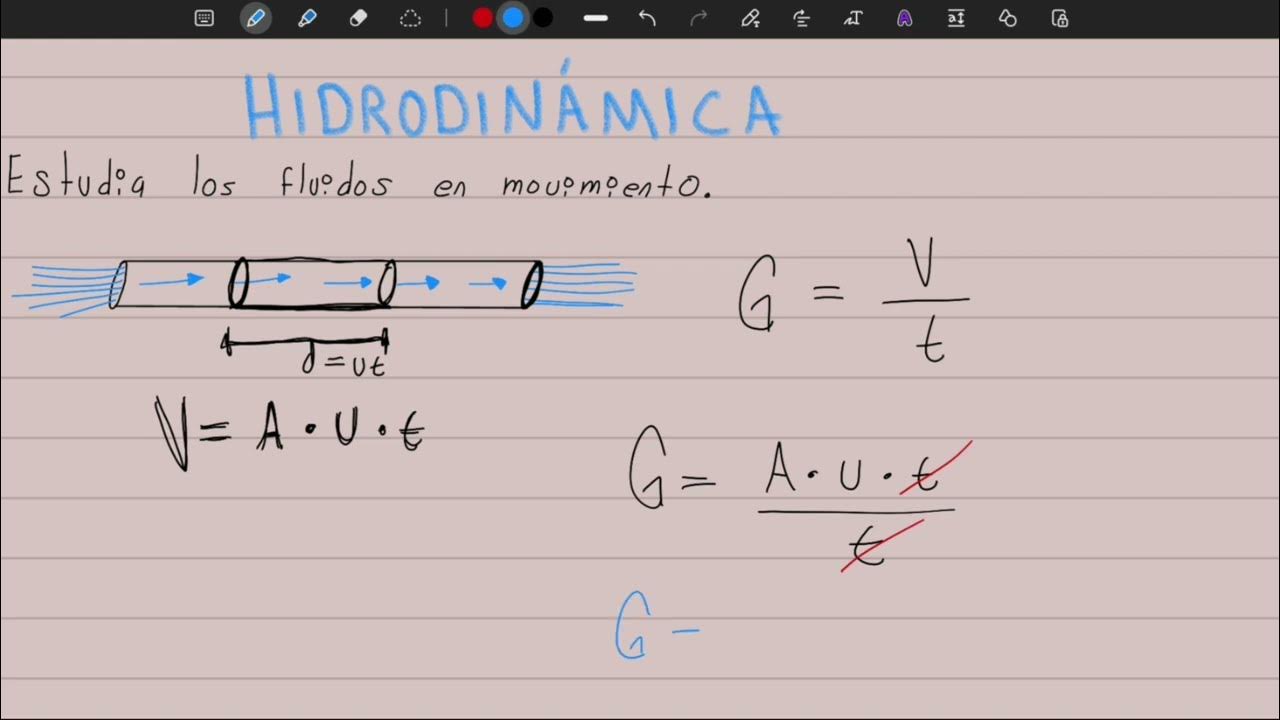 HIDRODINÁMICA
Estudia los fluidos en movimiento.
G = V / t
d = v t
V = A · v · t
G = A · v · t / t
G -